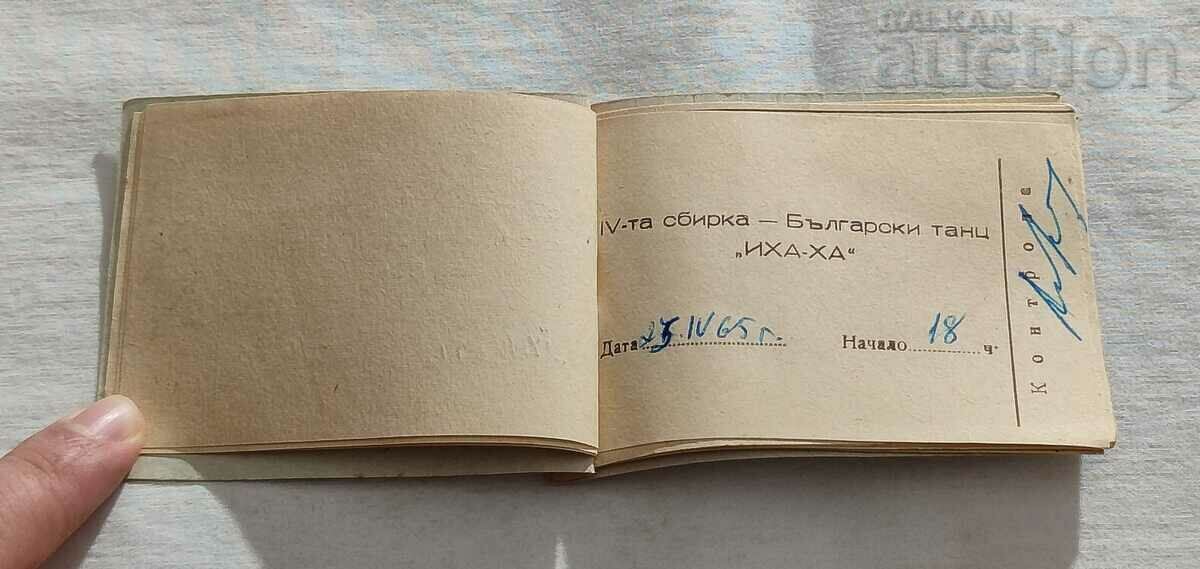 BALKAN
auction
IV-та сбирка — Български танц
„ИХА-ХА“
Дата 25.IV 65 г. Начало 18 ч.
Контрола